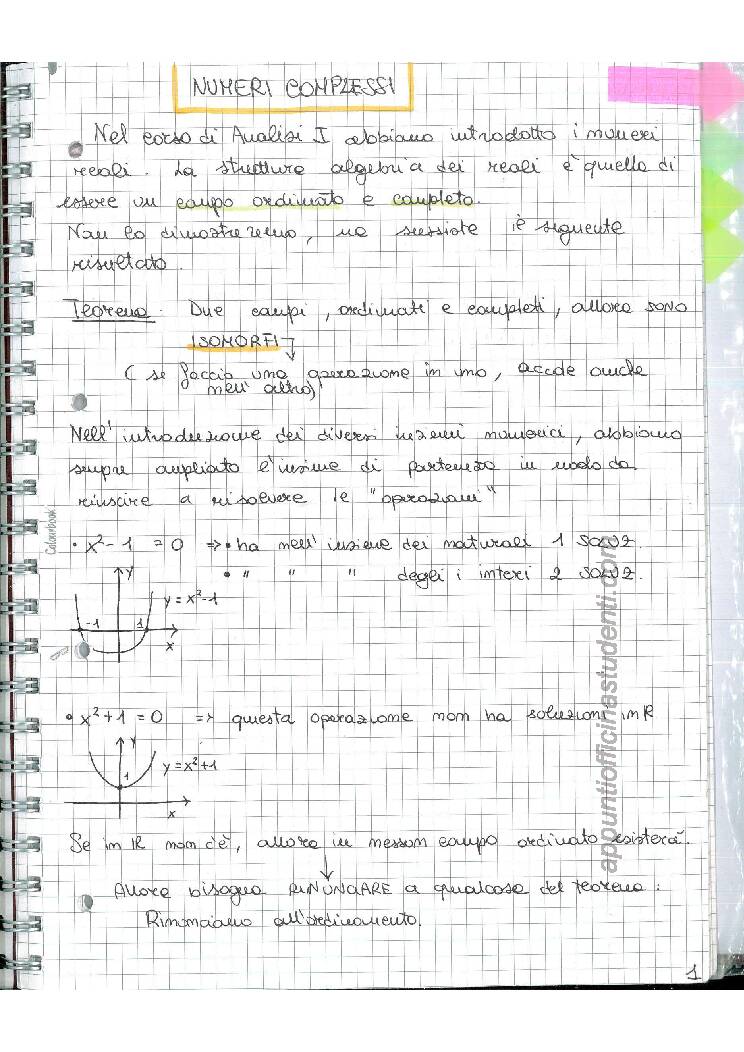 NUMERI COMPLESSI
Nel corso di Analisi I abbiamo introdotto i numeri
reali. La struttura algebrica dei reali è quella di
essere un campo ordinato e completo.
Non lo dimostreremo, ma sussiste il seguente
risultato.
Teorema. Due campi, ordinati e completi, allora sono
ISOMORFI
(se faccio una operazione in uno, accade anche
nell'altro)
Nell'introduzione dei diversi insiemi numerici, abbiamo
sempre ampliato l'insieme di partenza in modo da
riuscire a risolvere le "operazioni"
• x² - 1 = 0 => • ha nell'insieme dei naturali 1 SOLUZ.
• " " " degli interi 2 SOLUZ.
y
y = x²-1
-1 1
x
• x² + 1 = 0 => questa operazione non ha soluzioni in R
y
y = x²+1
1
x
Se in R non c'è, allora in nessun campo ordinato esisterà.
Allora bisogna RINUNCIARE a qualcosa del teorema:
Rinunciamo all'ordinamento.
1
Colourbook
appuntiofficinastudenti.com